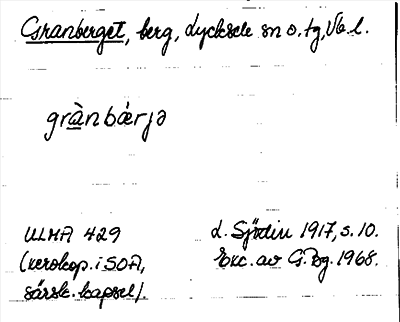 Granberget, berg, Lycksele sn o. tg, Vb. l.
grànbárjə
ULMA 429
(xerokop. i SOA,
särsk. kapsel).
L. Sjödin 1917, s. 10.
Exc. av G. Bg. 1968.